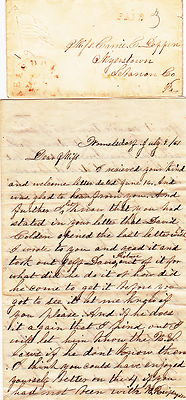 PAID 3
Miss Emma C. Deppen
Myerstown
Lebanon Co
Pa.
Womelsdorf July 8/61
Dear Miss
I recieved your kind
and welcome letter dated June 16. and
was glad to hear from you. And
further I seen that you had
stated in your letter that David
Golden opened the last letter
I wrote to you and read it and
took out Miss picture of it for
what did he do it or how did
he come to get it before you
got to see it let me know if
you please. And if he does
it again that I find out I
will let him know the P.O.
Laws if he dont know them
I think you could have enjoyed
yourself better on the 4 if you
had not been with